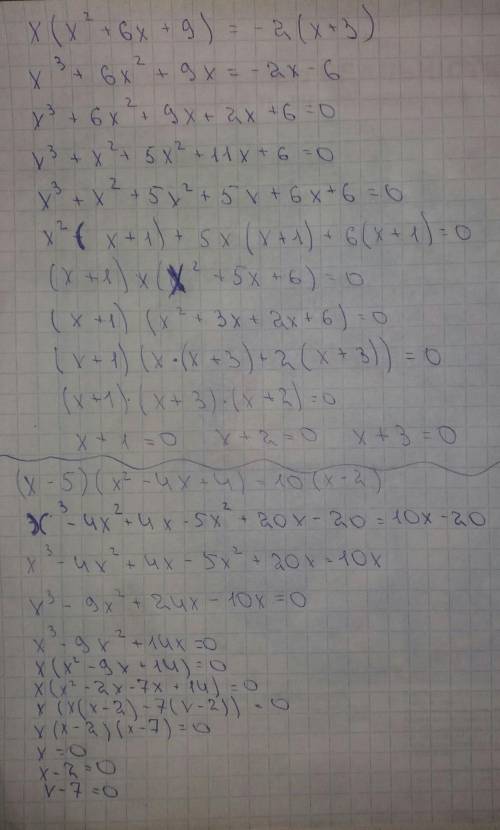 x(x² + 6x + 9) = -2(x+3)
x³ + 6x² + 9x = -2x - 6
x³ + 6x² + 9x + 2x + 6 = 0
x³ + x² + 5x² + 11x + 6 = 0
x³ + x² + 5x² + 5x + 6x + 6 = 0
x²(x+1) + 5x(x+1) + 6(x+1) = 0
(x+1)x(x² + 5x + 6) = 0
(x+1)(x² + 3x + 2x + 6) = 0
(x+1)(x·(x+3) + 2(x+3)) = 0
(x+1)·(x+3)·(x+2) = 0
x+1 = 0 x+2 = 0 x+3 = 0
(x-5)(x² - 4x + 4) = 10(x-2)
x³ - 4x² + 4x - 5x² + 20x - 20 = 10x - 20
x³ - 4x² + 4x - 5x² + 20x = 10x
x³ - 9x² + 24x - 10x = 0
x³ - 9x² + 14x = 0
x(x² - 9x + 14) = 0
x(x² - 2x - 7x + 14) = 0
x(x(x-2) - 7(x-2)) = 0
x(x-2)(x-7) = 0
x = 0
x-2 = 0
x-7 = 0